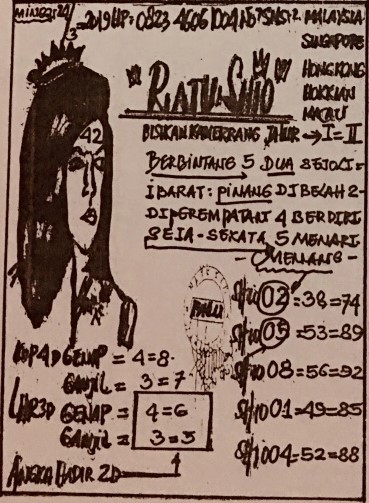 MINGGU: 24/3
=2019 HP: 0823 4606 1004
MALAYSIA
SINGAPORE
HONGKONG
HOKKIAN
MACAU
"RATU SHIO"
BISIKAN KAMERRANG JITUR → I = II
BERBINTANG 5 DUA SEJOLI =
IBARAT: PINANG DIBELAH 2 -
DIPEREMPATAN 4 BERDIRI
SEIA - SEKATA 5 MENARI
- MENANG -
42
PALU
Shio 02 = 38 = 74
Shio 05 = 53 = 89
Shio 08 = 56 = 92
Shio 01 = 49 = 85
Shio 04 = 52 = 88
KOP4D GENAP = 4 = 8
GANJIL = 3 = 7
GENAP = 4 = 6
GANJIL = 3 = 5
ANGKA HADIR 2D 4